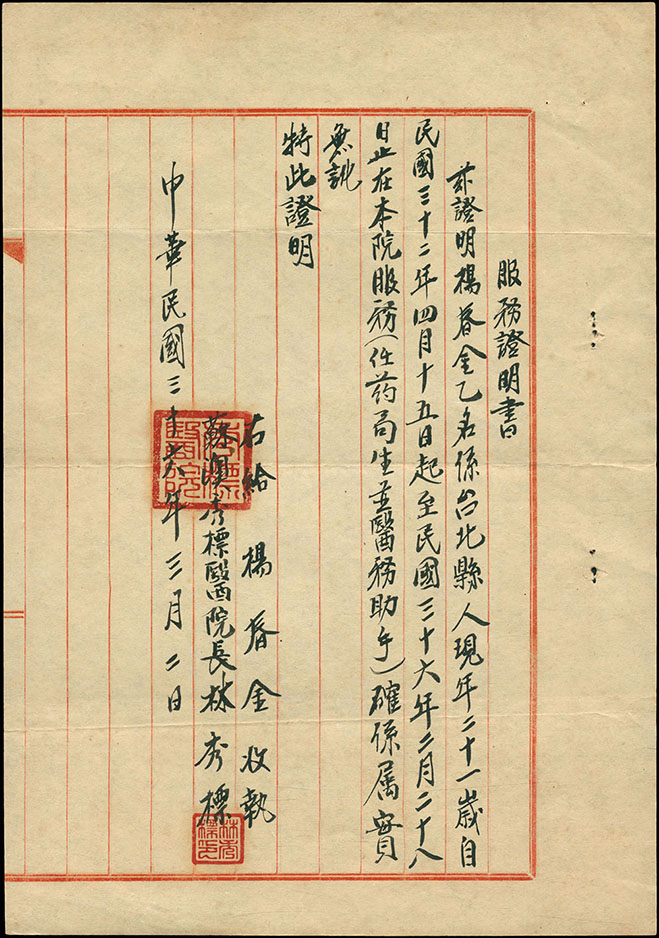 服務證明書
茲證明楊春金乙名係台北縣人現年二十一歲自
民國三十二年四月十五日起至民國三十六年二月二十八
日止在本院服務(任药局生並醫務助手)確係属實
無訛
特此證明
右給 楊春金收執
蘇澳秀標醫院長林秀標
中華民國三十六年三月二日
林秀標印